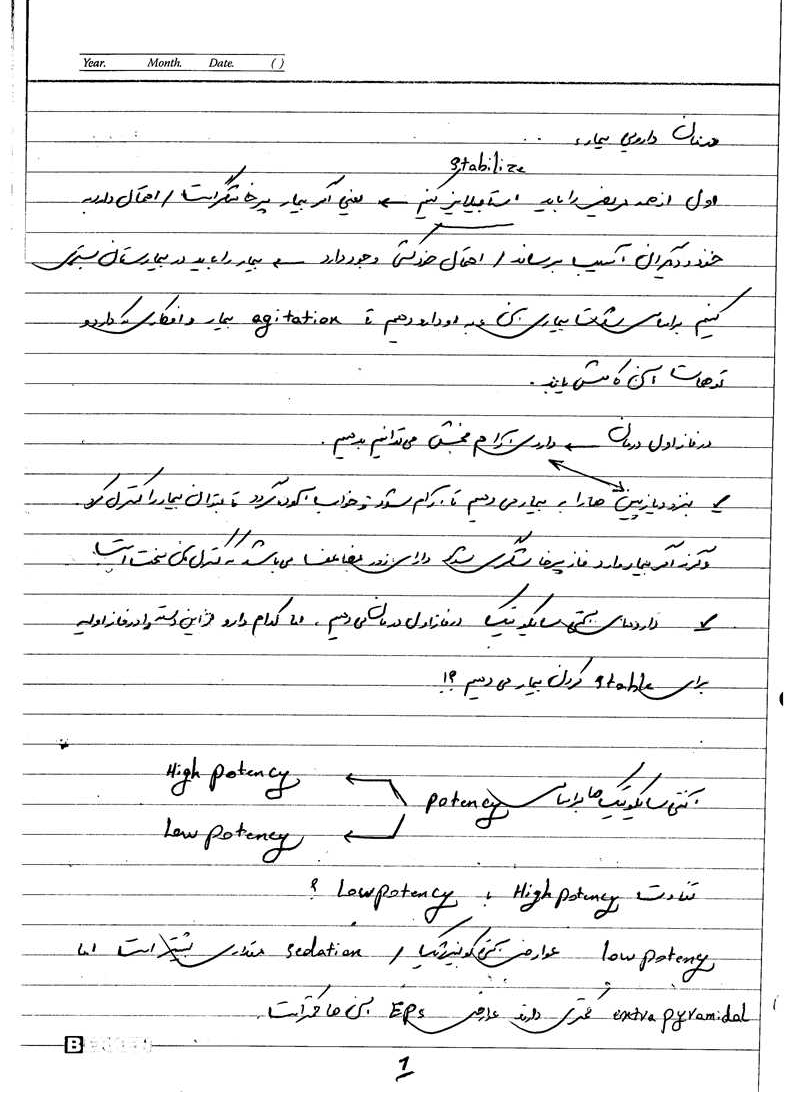 Year. Month. Date. ( )
درمان دارویی بیمار:
stabilize
اول از همه مریض را باید استابیلایز کنیم ← یعنی اگر بیمار پرخاشگر است / احتمال دارد به
خود و دیگران آسیب برساند / احتمال خودکشی وجود دارد ← بیمار را باید در بیمارستان بستری
کنیم براساس شدت بیماری به او دارو دهیم تا agitation بیمار و افکاری که دارد و
توهمات آن کاهش یابد.
در فاز اول درمان ← داروی آرام بخش می‌توانیم بدهیم.
✓ بنزودیازپین ها را به بیمار می دهیم تا آرام شود و خواب آلود گردد تا بتوان بیمار را کنترل کرد.
وگرنه اگر بیمار وارد فاز پرخاشگری شود دارای زور مضاعف می باشد که کنترل آن سخت است.
✓ داروهای آنتی سایکوتیک در فاز اول درمان می دهیم. اما کدام دارو از این دسته را در فاز اولیه
برای stable کردن بیمار می دهیم ؟!
آنتی سایکوتیک ها براساس potency
High potency
Low potency
تفاوت High potency با Low potency ؟
low potency عوارض آنتی کولینرژیک / sedation مقداری بیشتر است اما
extra pyramidal کمتری دارند عوارض EPs آن ها کمتر است.
B
1